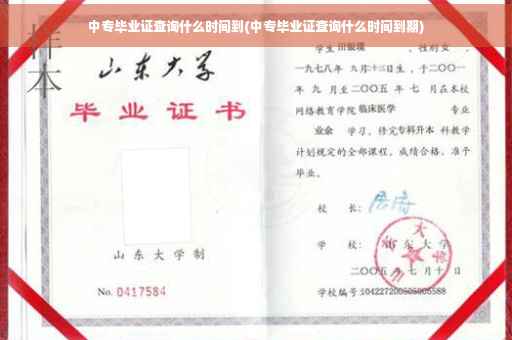 中专毕业证查询什么时间到(中专毕业证查询什么时间到期)
样本
山东大学
毕业证书
山东大学制
No. 0417584
学生田敬瑞 ，性别女 ，
一九七八年 九月十三日生，于二〇〇一
年 九 月至二〇〇五 年 七 月在本校
网络教育学院临床医学 专业
业余 学习，修完专科升本 科教学
计划规定的全部课程，成绩合格，准予
毕业。
校 长：
学 校：山东大学
二〇〇五 年 七 月 十 日
学校编号:104227200505005588